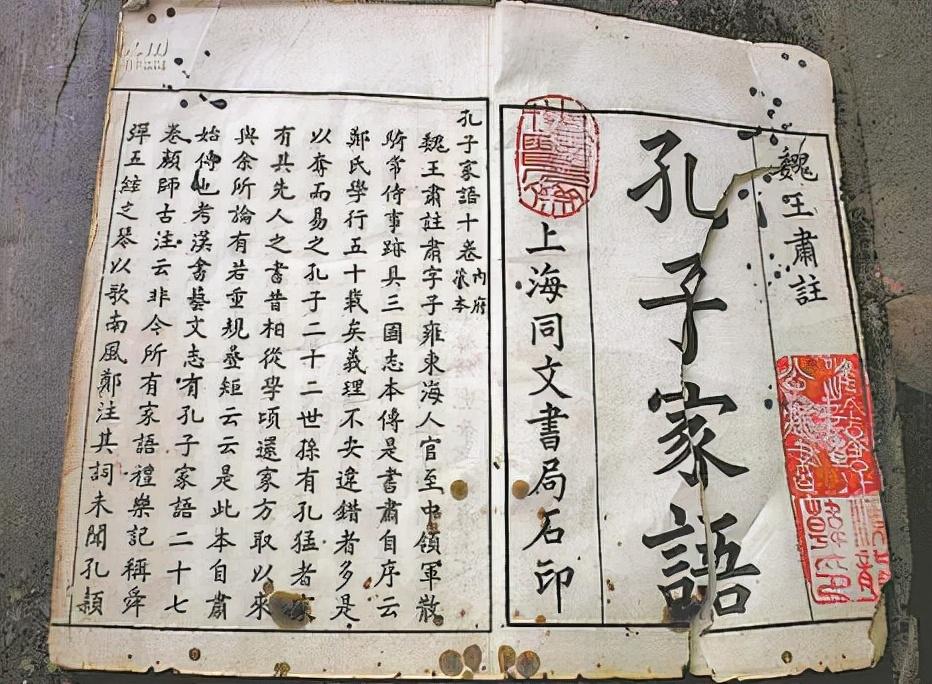 魏王肅註
孔子家語
上海同文書局石印
孔子家語十卷內府藏本
魏王肅註肅字子雍東海人官至中領軍散
騎常侍事跡具三國志本傳是書肅自序云
鄭氏學行五十載矣義理不安違錯者多是
以奪而易之孔子二十二世孫有孔猛者家
有其先人之書昔相從學頃還家方取以來
與余所論有若重規疊矩云云是此本自肅
始傳也考漢書藝文志有孔子家語二十七
卷顏師古注云非今所有家語禮樂記稱舜
彈五絃之琴以歌南風鄭注其詞未聞孔穎